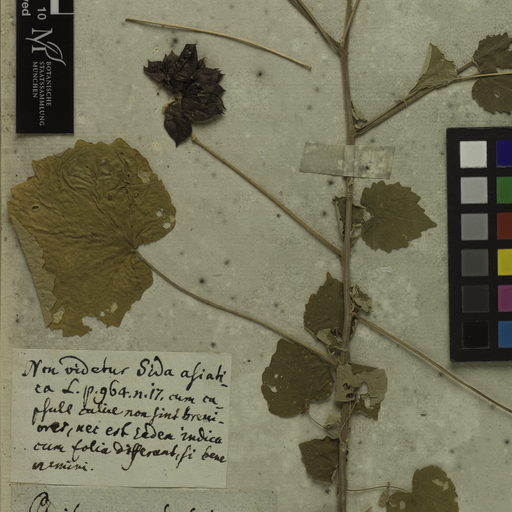 10
M
BOTANISCHE
STAATSSAMMLUNG
MÜNCHEN
Non videtur Sida asiati-
ca L. p. 964. n. 17. cum ca-
psulæ calice non sint brevi-
ores, nec est eadem indica
cum folia differant, si bene
memini.